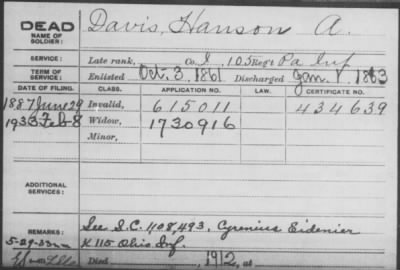 DEAD
NAME OF SOLDIER: Davis, Hanson A.
SERVICE: Late rank, Co. I, 105 Regt Pa Inf
TERM OF SERVICE: Enlisted Oct. 3, 1861 Discharged Jan. 1863
DATE OF FILING. CLASS. APPLICATION NO. LAW. CERTIFICATE NO.
1887 June 29 Invalid, 615011 434639
1933 Feb-8 Widow, 1730916
Minor,
ADDITIONAL SERVICES:
REMARKS: See I.C. 408,493, Cyrenius Eidenier
5-29-33 K 115 Ohio Inf.
Died 1912, at